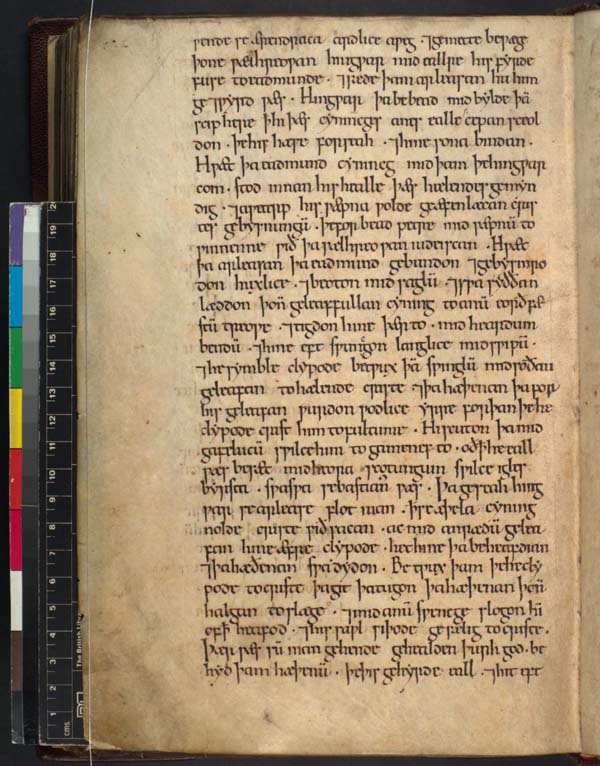 sende se ærendraca ardlice aweg · ⁊ gemette be wæge
þone wælhreowan hingwar mid eallre his fyrde
fuse to eadmunde · ⁊ sæde þam arleasan hu him
geandwyrd wæs · Hingwar þa bebead mid bylde þā
sciphere þ hi þæs cyninges anes ealle cepan sceol
don · þe his hæse forseah · ⁊ hine sona bindan ·
Hwæt þa eadmund cyning mid þam þe hingwar
com · stod innan his healle þæs hælendes gemyn
dig · ⁊ awearp his wæpna wolde geæfenlæcan cris
tes gebysnungū · þe forbead petre mid wæpnū to
winnenne wið þa wælhreowan iudeiscan · Hwæt
þa arleasan þa eadmund gebundon ⁊ gebysmro
don huxlice · ⁊ beoton mid saglū · ⁊ swa syððan
læddon þoñ geleaffullan cyning to anū eorðfæ
stū treowe · ⁊ tigdon hine þær to · mid heardum
bendū · ⁊ hine eft swungon langlice mid swipū ·
⁊ he symble clypode betwux þā swinglū mid soðan
geleafan to hælende criste · ⁊ þa hæþenan þa for
his geleafan wurdon wodlice yrre forþan þe he
clypode crist him to fultume · Hi scuton þa mid
gafelucū swilce him to gamenes to · oð þ he eall
wæs besæt mid heora scotungum swilce igles
byrsta · swa swa sebastianus wæs · Þa geseah hing
war se arleasa flotman · þ se æþela cyning
nolde criste wiðsacan · ac mid anrædū gelea
fan hine æfre clypode · het hine þa beheafdian
⁊ þa hæðenan swa dydon · Betwux þam þe he cly
pode to criste þagit þa tugon þa hæþenan þoñ
halgan to slæge · ⁊ mid anū swenge slogon hī
of þ heafod · ⁊ his sawl siþode gesælig to criste ·
Þær wæs sū man gehende gehealden þurh god · be
hyd þam hæþenū · þe þis gehyrde eall · ⁊ hit eft